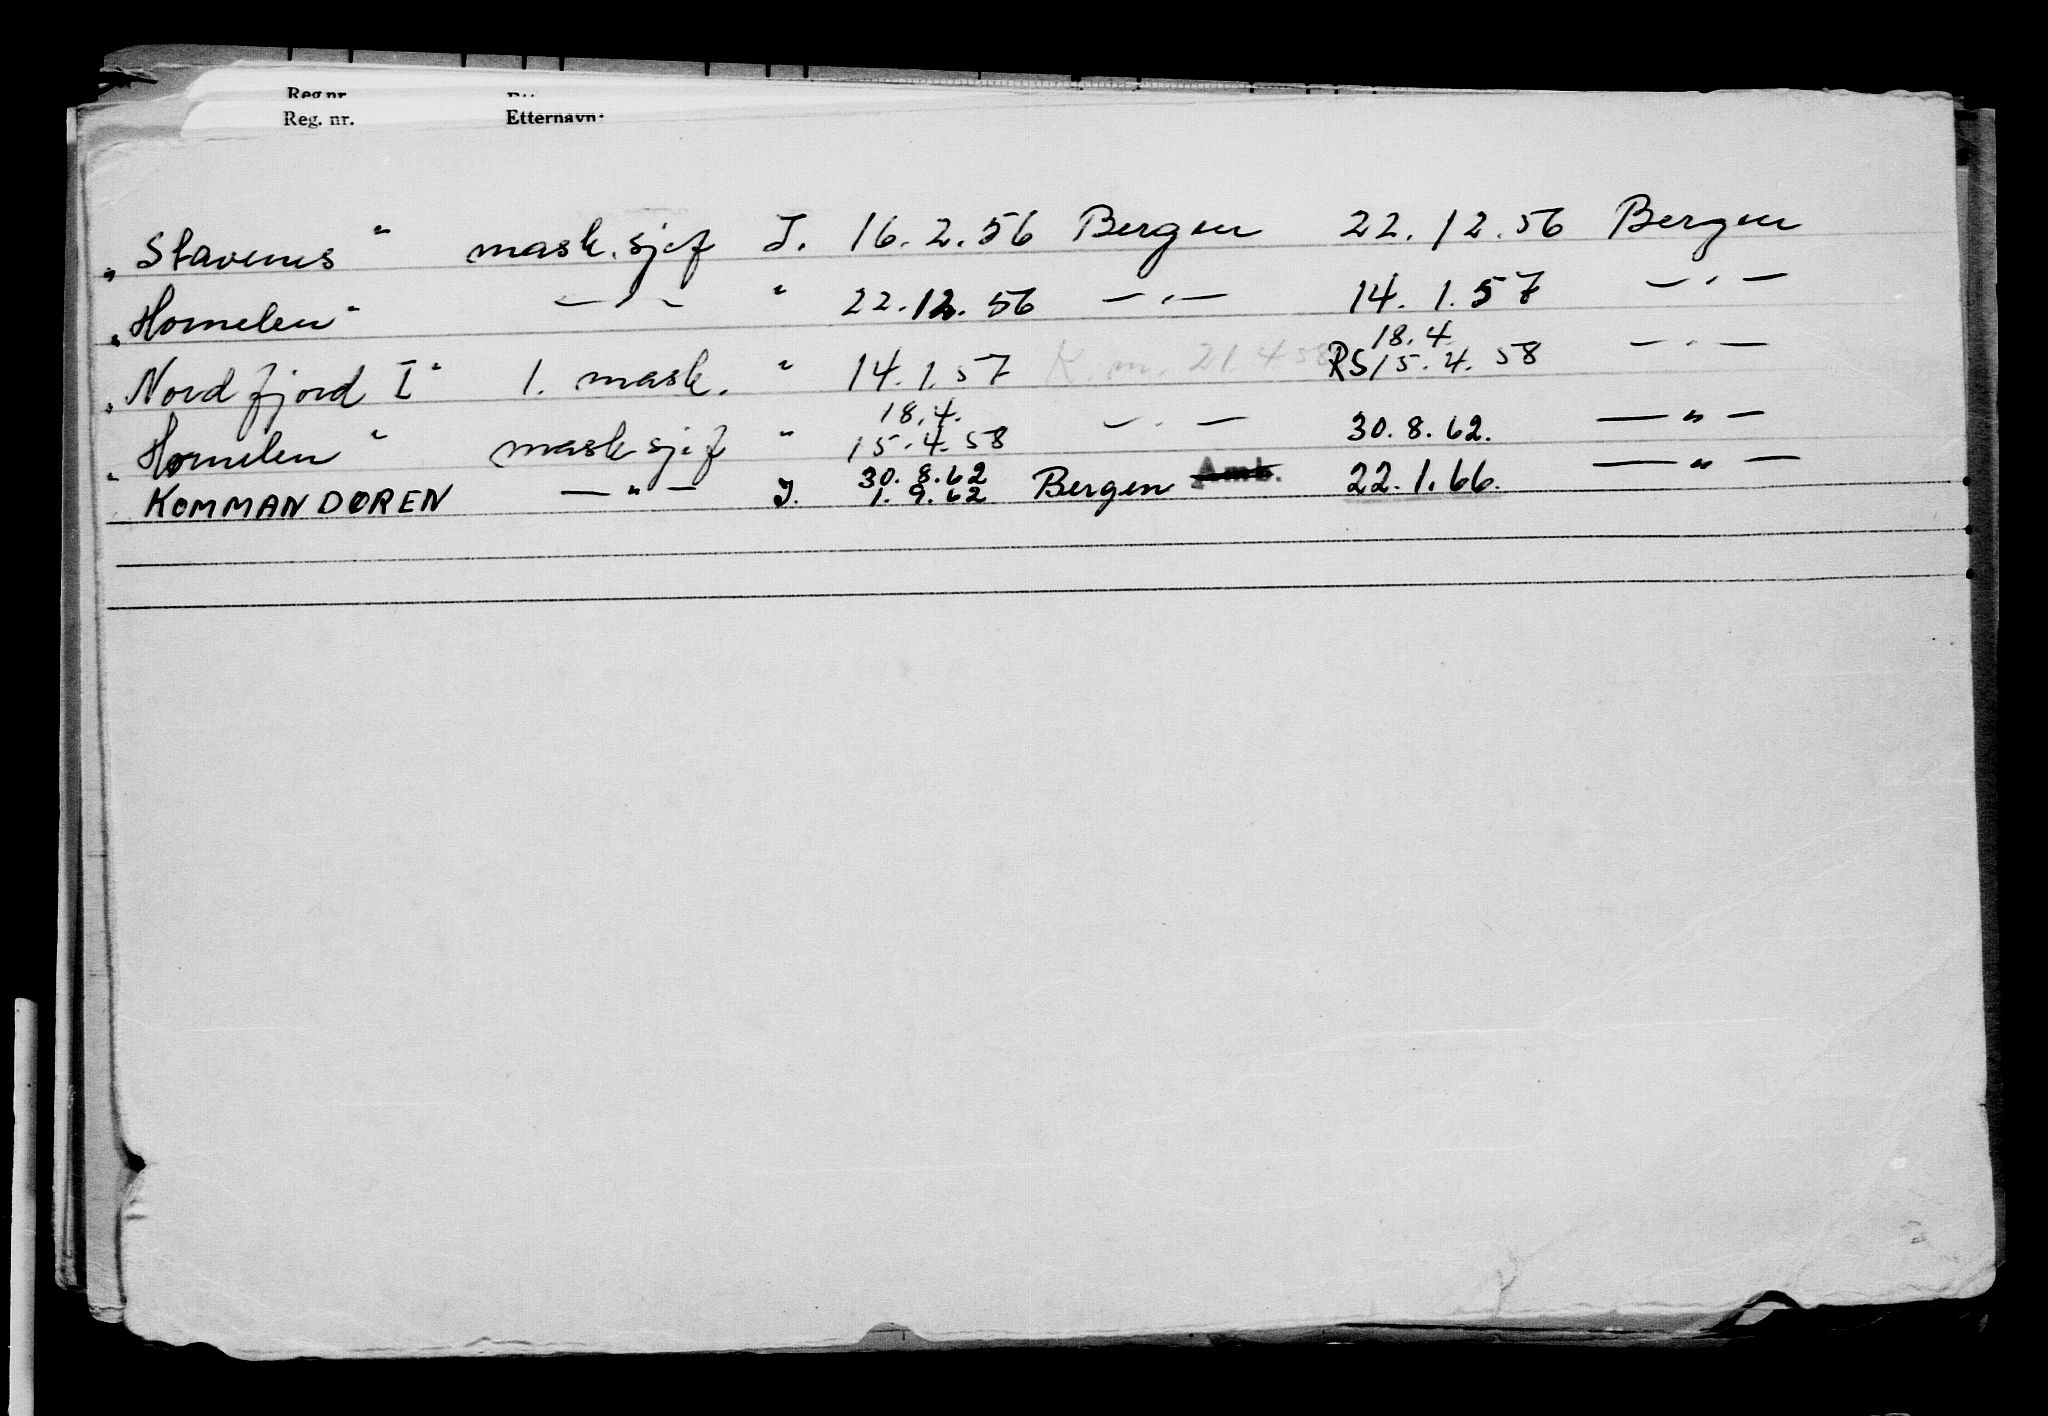 Reg nr.
Reg. nr. Etternavn:
„Stavenes" mask. sjef I. 16.2.56 Bergen 22.12.56 Bergen
„Hornelen" — " — " 22.12.56 — " — 14.1.57 — " —
18.4.
„Nordfjord I" 1. mask. " 14.1.57 K. m. 21.4.58 RS 15.4.58 — " —
18.4.
„Hornelen" mask sjef " 15.4.58 — " — 30.8.62. — " —
30.8.62
KOMMANDØREN — " — I. 1.9.62 Bergen Amb. 22.1.66. — " —